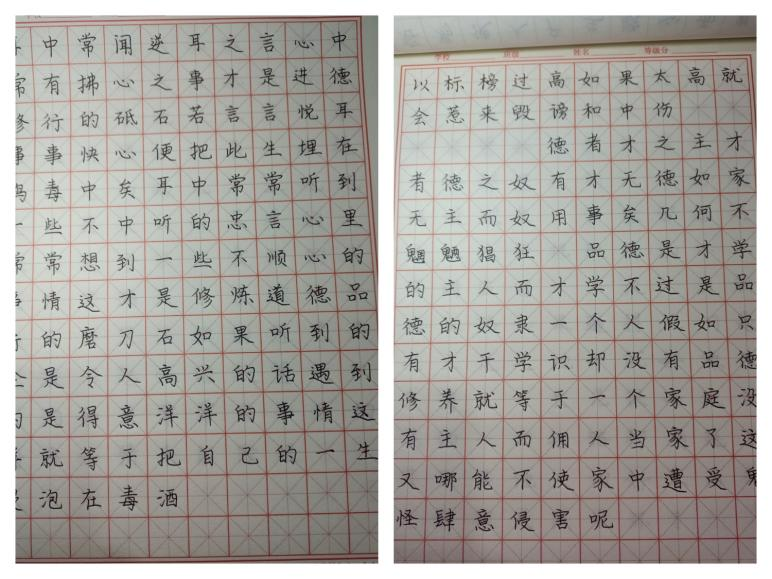 耳中常闻逆耳之言心中
常有拂心之事才是进德
修行的砥石若言言悦耳
事事快心便把此生埋在
鸩毒中矣耳中常常听到
一些不中听的忠言心里
常常想到一些不顺心的
事情这才是修炼道德品
行的磨刀石如果听到的
是令人高兴的话遇到
的是得意洋洋的事情这
就等于把自己的一生
泡在毒酒
学校 班级 姓名 等级分
以标榜过高如果太高就
会惹来毁谤和中伤
德者才之主才
者德之奴有才无德如家
无主而奴用事矣几何不
魍魉猖狂 品德是才学
的主人而才学不过是品
德的奴隶一个人假如只
有才干学识却没有品德
修养就等于一个家庭没
有主人而佣人当家了这
又哪能不使家中遭受鬼
怪肆意侵害呢